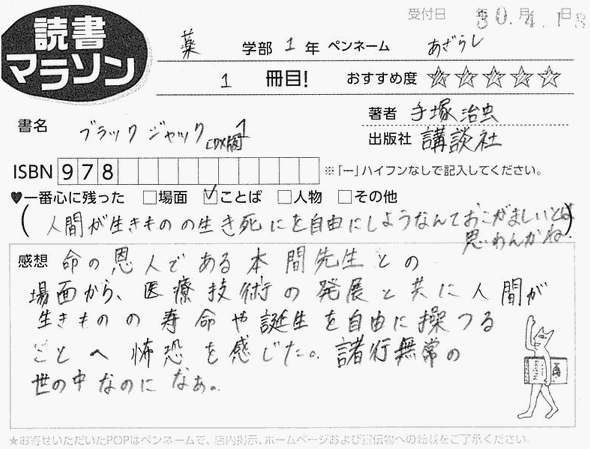 受付日 年 月 日
30.4.18
読書
マラソン
薬 学部 1 年 ペンネーム あざらし
1 冊目! おすすめ度 ☆☆☆☆☆
書名 ブラックジャック 1
著者 手塚治虫
出版社 講談社
ISBN 978 ※「ー」ハイフンなしで記入してください。
♥一番心に残った □場面 ☑ことば □人物 □その他
(人間が生きものの生き死にを自由にしようなんておこがましいとは
思わんかね)
感想 命の恩人である本間先生との
場面から、医療技術の発展と共に人間が
生きものの寿命や誕生を自由に操つる
ことへ怖恐を感じた。諸行無常の
世の中なのになあ。
★お寄せいただいたPOPはペンネームで、店内掲示、ホームページおよび宣伝物への転載をご了承ください。